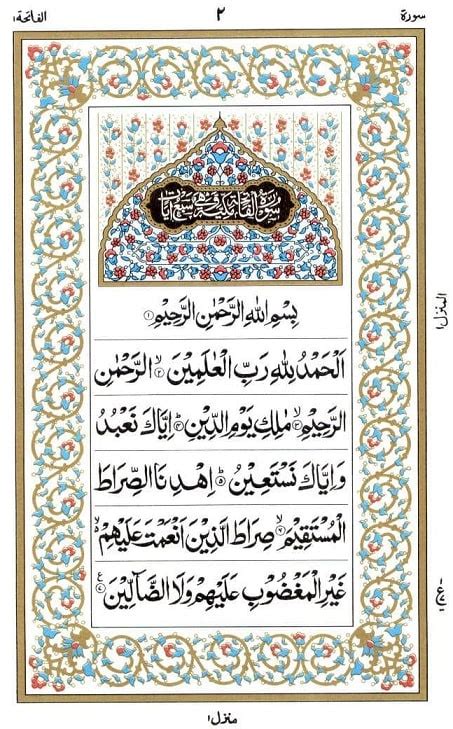 سورة ٢ الفاتحة ١
سورة الفاتحة مكية وهي سبع آيات
بِسْمِ اللهِ الرَّحْمٰنِ الرَّحِيْمِ ١
اَلْحَمْدُ لِلّٰهِ رَبِّ الْعٰلَمِيْنَ ۙ ٢ الرَّحْمٰنِ
الرَّحِيْمِ ۙ ٣ مٰلِكِ يَوْمِ الدِّيْنِ ؕ ٤ اِيَّاكَ نَعْبُدُ
وَاِيَّاكَ نَسْتَعِيْنُ ؕ ٥ اِهْدِنَا الصِّرَاطَ
الْمُسْتَقِيْمَ ۙ ٦ صِرَاطَ الَّذِيْنَ اَنْعَمْتَ عَلَيْهِمْ ۙ۬
غَيْرِ الْمَغْضُوْبِ عَلَيْهِمْ وَلَا الضَّآلِّيْنَ ٧ ع
المنزل ١
منزل ١